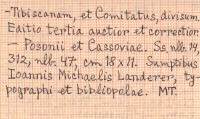 -Tibiscanam, et Comitatus, divisum.
Editio tertia auctior et correctior.
- Posonii et Cassoviae. Ss. nlb. 14,
312, nlb. 47, cm 18 x 11. Sumptibus
Ioannis Michaelis Landerer, ty-
pographi et bibliopolae. MT.